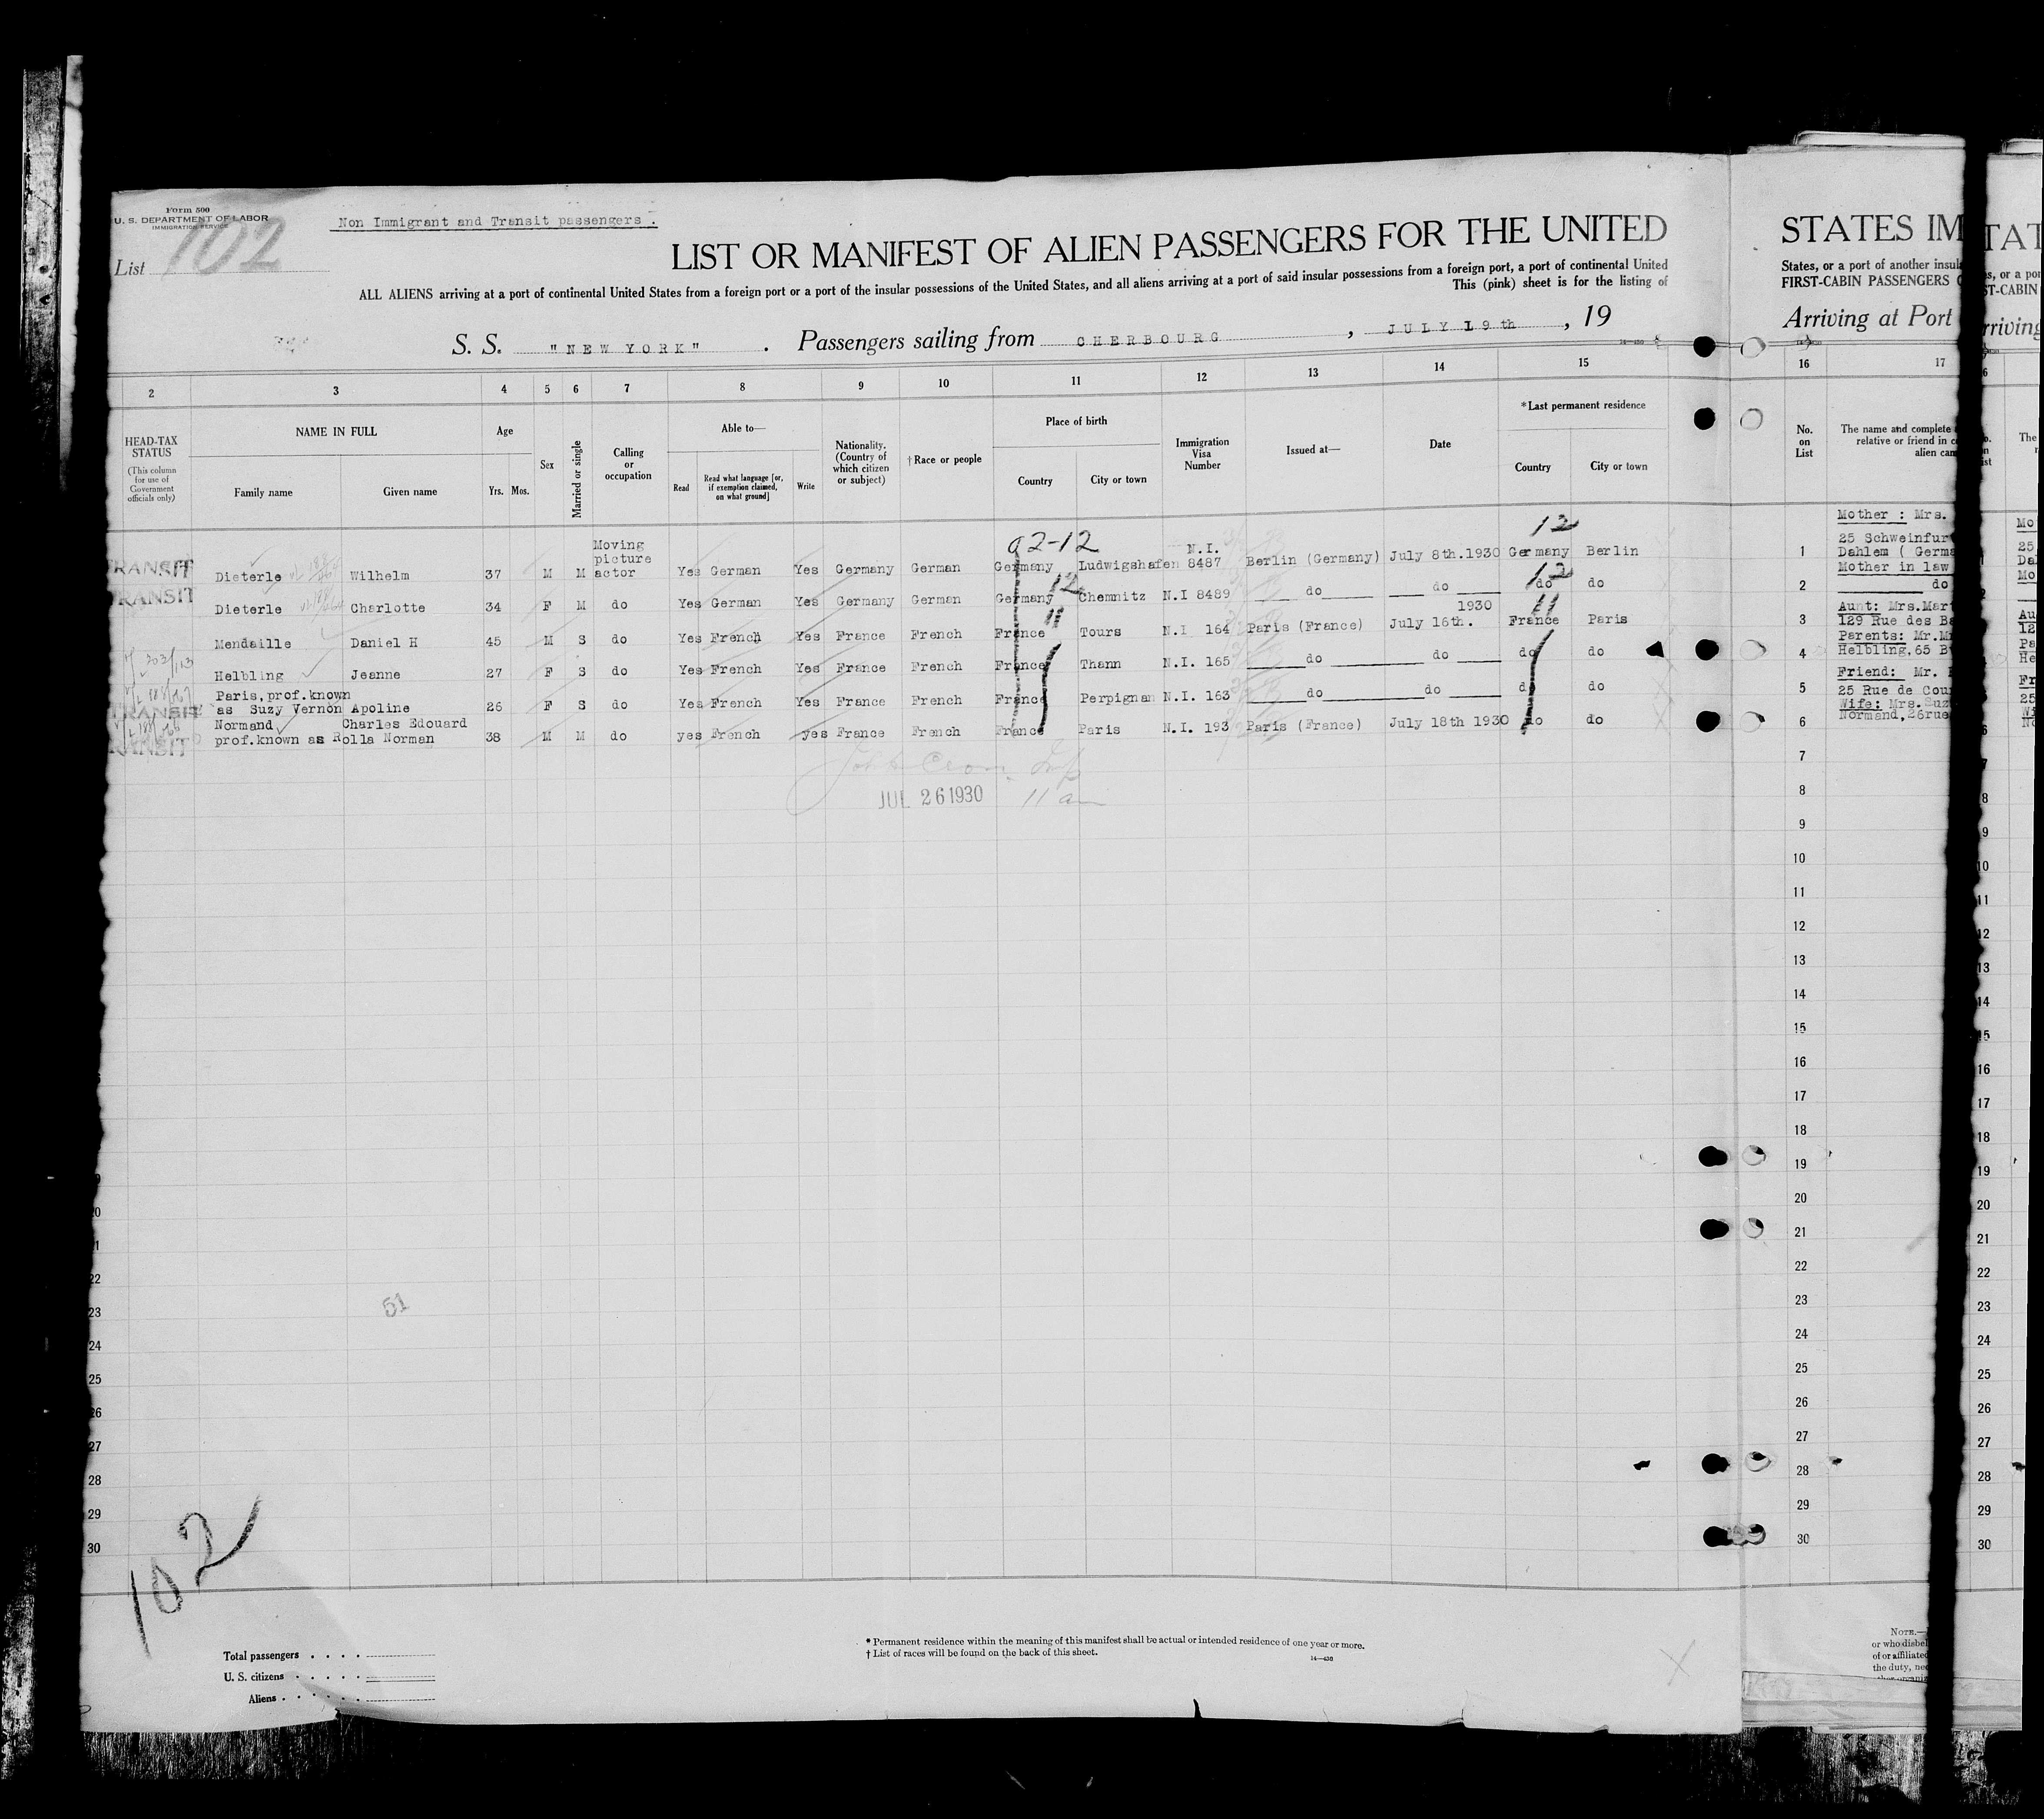 Form 500
U. S. DEPARTMENT OF LABOR
IMMIGRATION SERVICE
Non Immigrant and Transit passengers .
102
List
LIST OR MANIFEST OF ALIEN PASSENGERS FOR THE UNITED
ALL ALIENS arriving at a port of continental United States from a foreign port or a port of the insular possessions of the United States, and all aliens arriving at a port of said insular possessions from a foreign port, a port of continental United
This (pink) sheet is for the listing of
S. S. "NEW YORK" . Passengers sailing from CHERBOURG , JULY 19th , 19
2 3 4 5 6 7 8 9 10 11 12 13 14 15
HEAD-TAX STATUS
(This column for use of Government officials only)
NAME IN FULL
Family name Given name
Age
Yrs. Mos.
Sex
Married or single
Calling or occupation
Able to—
Read
Read what language [or, if exemption claimed, on what ground]
Write
Nationality. (Country of which citizen or subject)
†Race or people
Place of birth
Country City or town
Immigration Visa Number
Issued at—
Date
*Last permanent residence
Country City or town
02-12 12
TRANSIT Dieterle Wilhelm 37 M M Moving picture actor Yes German Yes Germany German Germany Ludwigshafen N.I. 8487 Berlin (Germany) July 8th.1930 Germany Berlin
12 12
TRANSIT Dieterle Charlotte 34 F M do Yes German Yes Germany German Germany Chemnitz N.I 8489 do do do do
11 11
Mendaille Daniel H 45 M S do Yes French Yes France French France Tours N.I 164 Paris (France) July 16th. 1930 France Paris
Helbling Jeanne 27 F S do Yes French Yes France French France Thann N.I. 165 do do do do
TRANSIT Paris,prof.known as Suzy Vernon Apoline 26 F S do Yes French Yes France French France Perpignan N.I. 163 do do do do
TRANSIT Normand Charles Edouard prof.known as Rolla Norman 38 M M do yes French yes France French France Paris N.I. 193 Paris (France) July 18th 1930 do do
JUL 26 1930 11 am
51
22
23
24
25
26
27
28
29
30
102
Total passengers
U. S. citizens
Aliens
* Permanent residence within the meaning of this manifest shall be actual or intended residence of one year or more.
† List of races will be found on the back of this sheet.
14—430
STATES IM
States, or a port of another insul
FIRST-CABIN PASSENGERS
Arriving at Port
16 17
No. on List
The name and complete
relative or friend in
alien
1
Mother : Mrs.
25 Schweinfur
Dahlem ( Germa
2
Mother in law
do
3
Aunt: Mrs.Mar
129 Rue des Ba
4
Parents: Mr.M
Helbling,65 B
5
Friend: Mr.
25 Rue de Cou
6
Wife: Mrs.Suz
Normand,26rue
7
8
9
10
11
12
13
14
15
16
17
18
19
20
21
22
23
24
25
26
27
28
29
30
NOTE.—
or who disbel
of or affiliated
the duty, nec
TAT
s, or a por
ST-CABIN
rriving
The
Mo
25
Da
Mo
Au
12
Pa
He
Fr
25
Wi
No
8
9
10
11
12
13
14
15
16
17
18
19
20
21
22
23
24
25
26
27
28
29
30